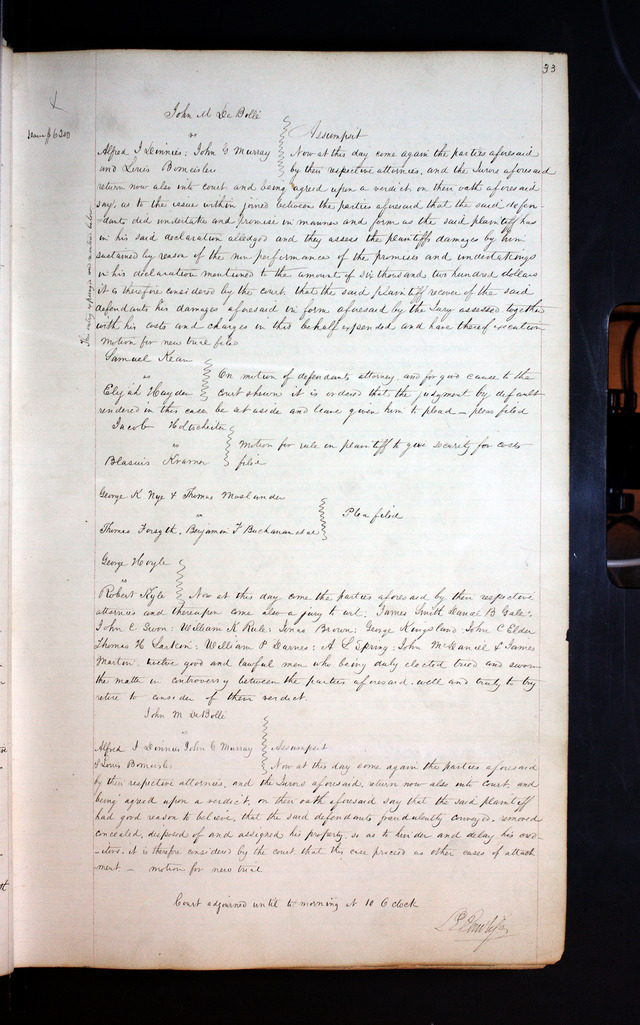 33
John M De Bolle
vs
Assumpsit
Alfred J Dinnies; John G Murray
and Louis Bomeisler
Now at this day come again the parties aforesaid
by their respective attornies, and the Jurors aforesaid
return now also into court and being agreed upon a verdict on their oath aforesaid
say, as to the issue within joined between the parties aforesaid that the said defen-
dants did undertake and promise in manner and form as the said plaintiff has
in his said declaration alledged and they assess the plaintiffs damages by him
sustained by reason of the non performance of the promises and undertakings
in his declaration mentioned to the amount of six thousand two hundred dollars
it is therefore considered by the court, that the said plaintiff recover of the said
defendants his damages aforesaid in form aforesaid by the Jury assessed together
with his costs and charges in this behalf expended and have thereof execution
Motion for new trial filed
This entry
Samuel Kean
vs
Elijah Hayden
On motion of defendants attorney and for good cause to the
court shown it is ordered that the judgment by default
rendered in this case be set aside and leave given him to plead – pleas filed
Jacob
vs
Blasius Kramer
Motion for rule on plaintiff to give security for costs
filed
George K Nye & Thomas
vs
Thomas Forsyth, Benjamin F Buchanan et al
Plea filed
George Hoyle
vs
Robert Kyle
Now at this day come the parties aforesaid by their respective
attornies and thereupon come also a jury to wit; James Smith Daniel B Gale;
John C William K Rule; Jonas Brown; George Kingsland John C Elder
Thomas H Larkin; William P A L Spring; John McDaniel & James
Martin, twelve good and lawful men who being duly elected tried and sworn
the matter in controversy between the parties aforesaid well and truly to try
retire to consider of their verdict.
John M DeBolle
vs
Alfred J Dinnies John G Murray
& Louis Bomeisler
Assumpsit
Now at this day come again the parties aforesaid
by their respective attornies, and the Jurors aforesaid, return now also into court, and
being agreed upon a verdict, on their oath aforesaid say that the said plaintiff
had good reason to believe, that the said defendants fraudulently conveyed, removed
concealed, disposed of and assigned his property, so as to hinder and delay his cred-
-itors. it is therefore considered by the court that this case proceed as other cases of attach
ment – motion for new trial.
Court adjourned until to morning at 10 O clock